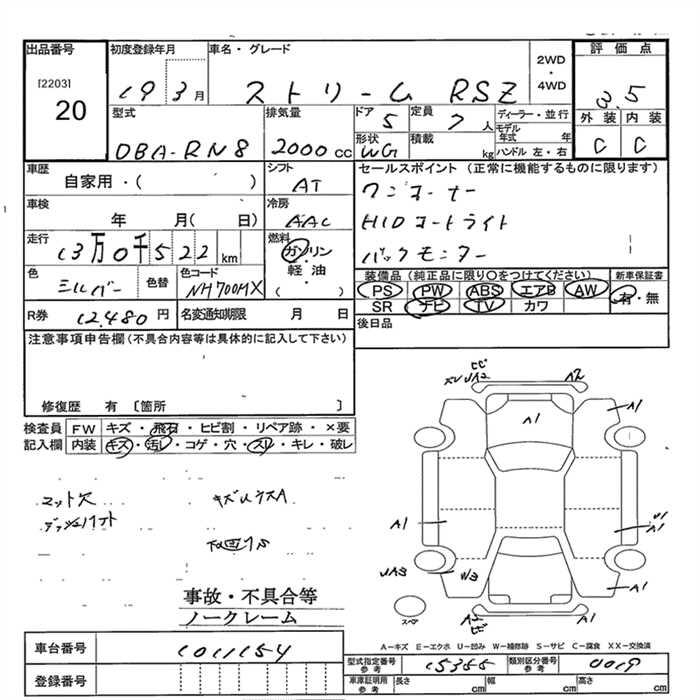 出品番号
[2203]
20
初度登録年月
19 3月
車名・グレード
ストリーム RSZ
2WD
・
4WD
評価点
3.5
外装 内装
C C
型式
DBA-RN8
排気量
2000cc
ドア
5
定員
7人
形状
WG
積載
kg
ディーラー・並行
モデル年式 年
ハンドル 左・右
車歴
自家用・( )
シフト
AT
車検
年 月( 日)
冷房
AAC
走行
13万0千522km
燃料
ガソリン
・
軽油
・
( )
色
シルバー
色替
色コード
NH700MX
R券
12,480円
名変通知期限 月 日
セールスポイント (正常に機能するものに限ります)
ワンオーナー
HIDオートライト
バックモニター
装備品 (純正品に限り○をつけてください)
PS PW ABS エアB AW
SR ナビ TV カワ
新車保証書
有・無
後日品
注意事項申告欄 (不具合内容等は具体的に記入して下さい)
修復歴 有 [箇所 ]
検査員 FW キズ・飛石・ヒビ割・リペア跡・×要
記入欄 内装 キズ・汚レ・コゲ・穴・スリ・キレ・破レ
マット欠
キズUクスA
下回リS
事故・不具合等
ノークレーム
車台番号
1011154
登録番号
A2
A1
A1
A1
A1
U1
UA3
U3
A1
スペア
A-キズ E-エクボ U-凹み W-補修跡 S-サビ C-腐食 XX-交換済
型式指定番号
参考
15355
類別区分番号
参考
0019
車庫証明用
参考
長さ cm 幅 cm 高さ cm